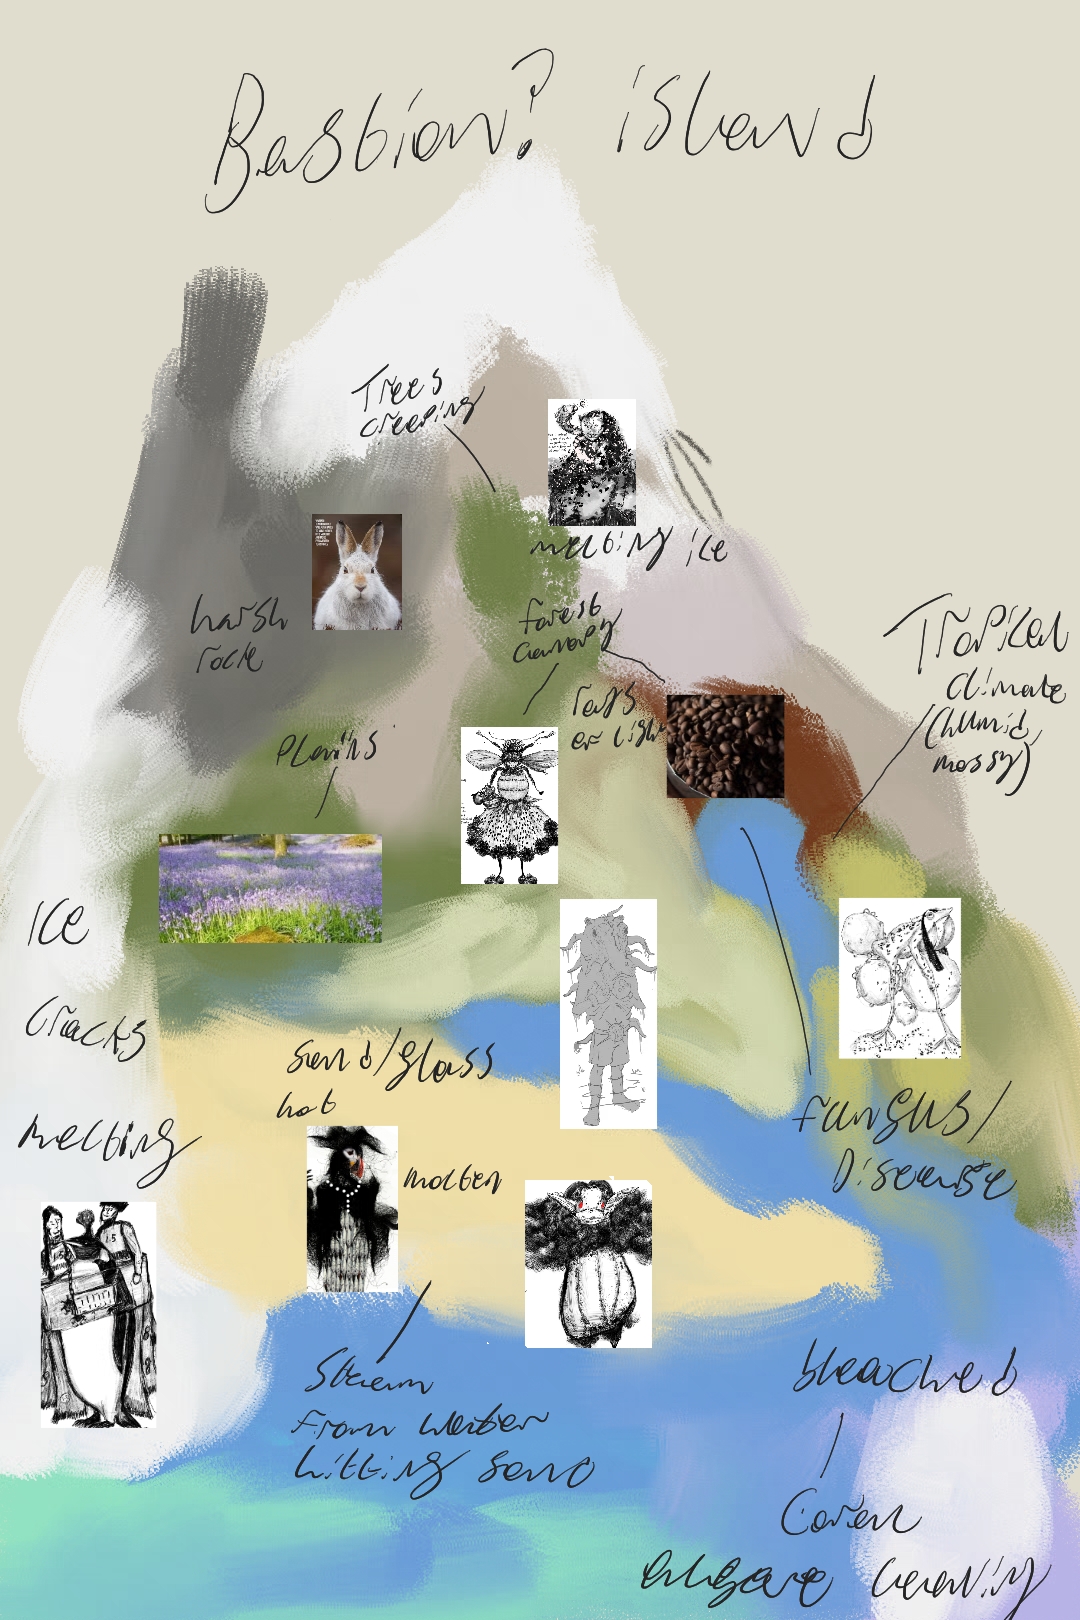 Bastion? island
Trees
creeping
melting ice
harsh
rock
forest
canopy
Tropical
climate
(humid,
mossy)
rays
of light
Plains
ICE
cracks
melting
sand/glass
hot
molten
fungus/
Disease
Steam
from water
hitting sand
bleached
Coral
algae leaving